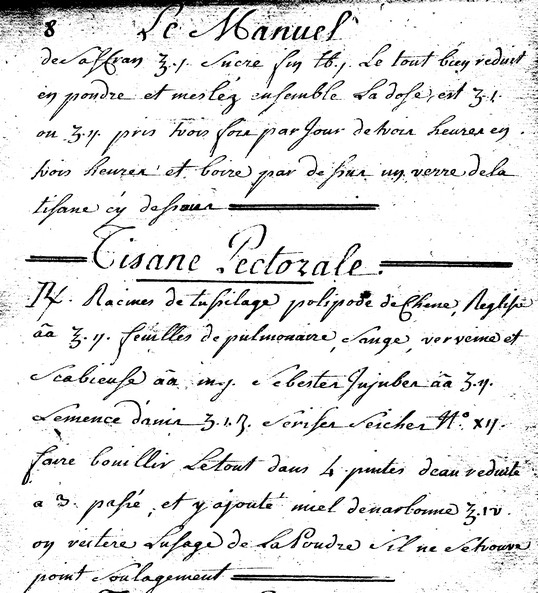 8 Le Manuel
de Saffran ʒ.j Sucre fin tb.j Le tout bien reduit
en poudre et mesléz ensemble La dose est ʒ.j.
ou ʒ.ij pris trois fois par Jour de trois heures en
trois heures et boire par dessus un verre de la
tisane cy dessous
Tisane Pectorale.
R. Racines de tussilage polipode de Chene, Reglisse
āā ʒ.ij. feuilles de pulmonaire, Sauge, verveine et
Scabieuse āā m.j. Sebestes Jujubes āā ʒ.ij.
Semence d'anis ʒ.i.ß. Serises Seiches N.° xij.
faire bouillir Le tout dans 4 pintes deau reduite
a 3. passé, et y ajouté miel de narbonne ʒ.iv.
on reitere Lusage de La Poudre Sil ne se trouve
point Soulagement